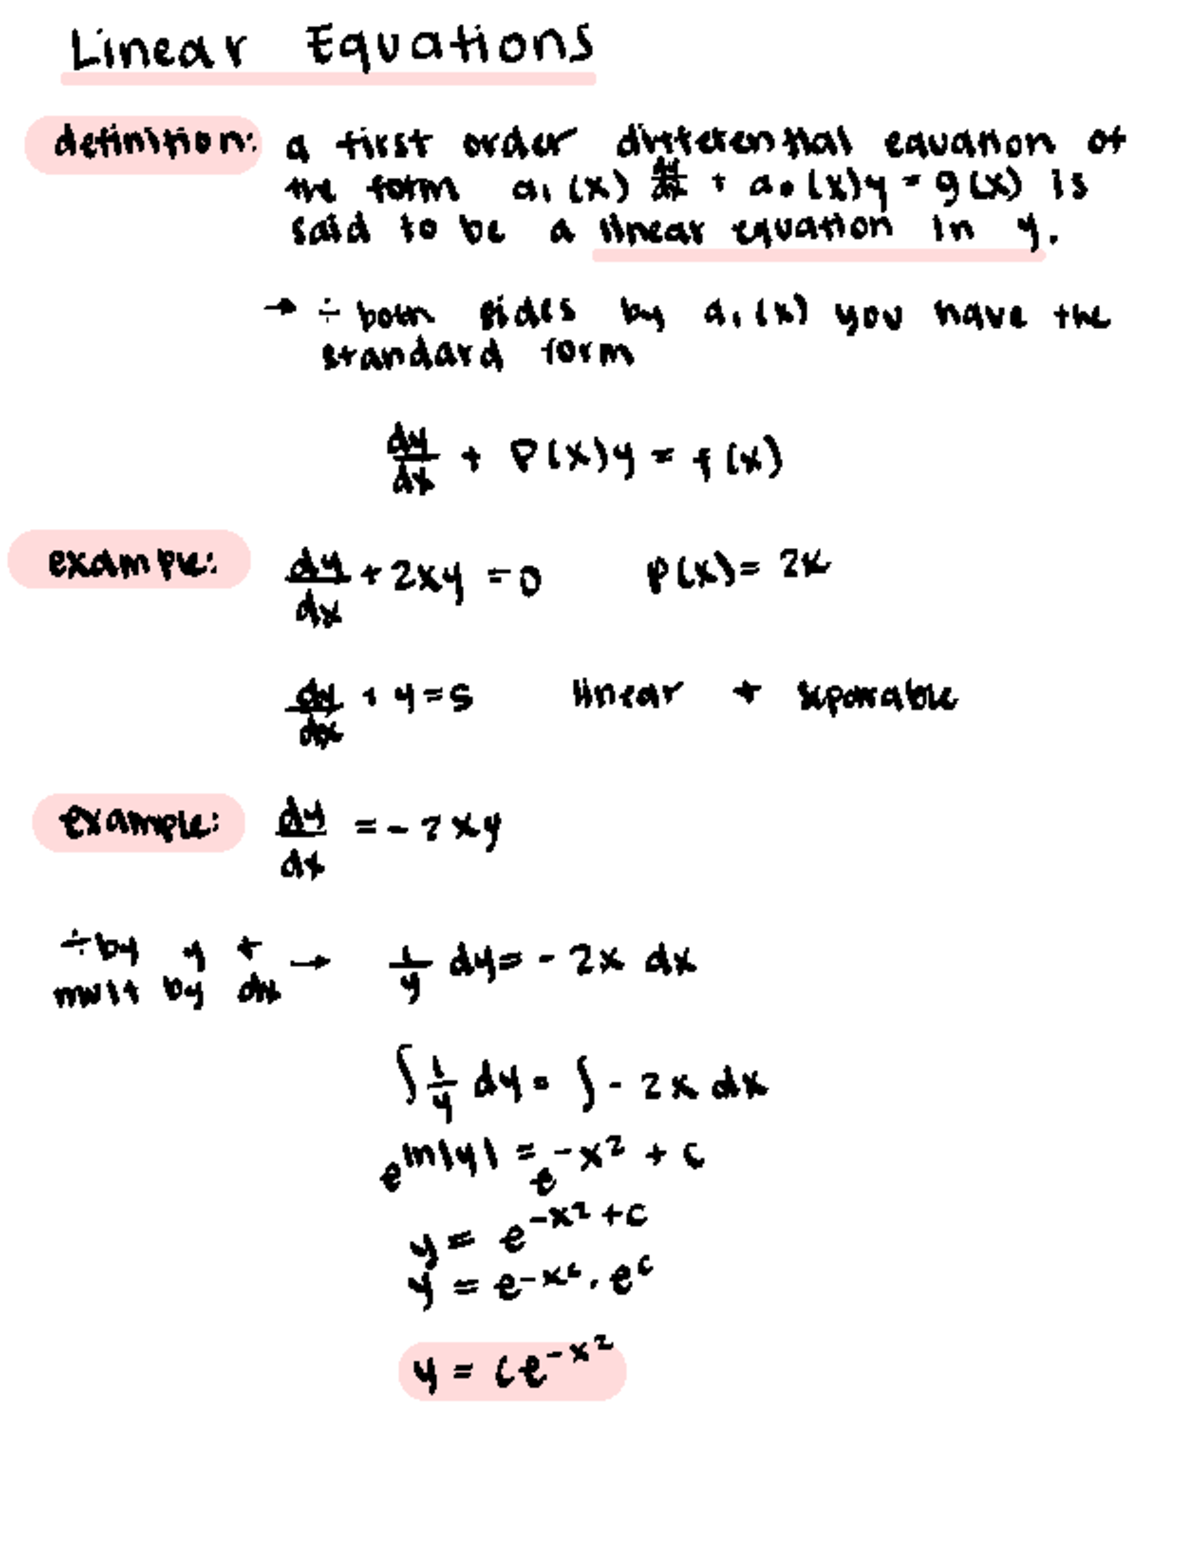 Linear Equations
definition: a first order differential equation of
the form a₁(x) dy/dx + a₀(x)y = g(x) is
said to be a linear equation in y.
→ ÷ both sides by a₁(x) you have the
standard form
dy/dx + P(x)y = f(x)
example: dy/dx + 2xy = 0 P(x) = 2x
dy/dx + y = 5 linear + separable
example: dy/dx = -2xy
÷ by y +
mult by dx → 1/y dy = -2x dx
∫ 1/y dy = ∫ -2x dx
e^ln|y| = e^-x² + c
y = e^-x²+c
y = e^-x² · e^c
y = Ce^-x²